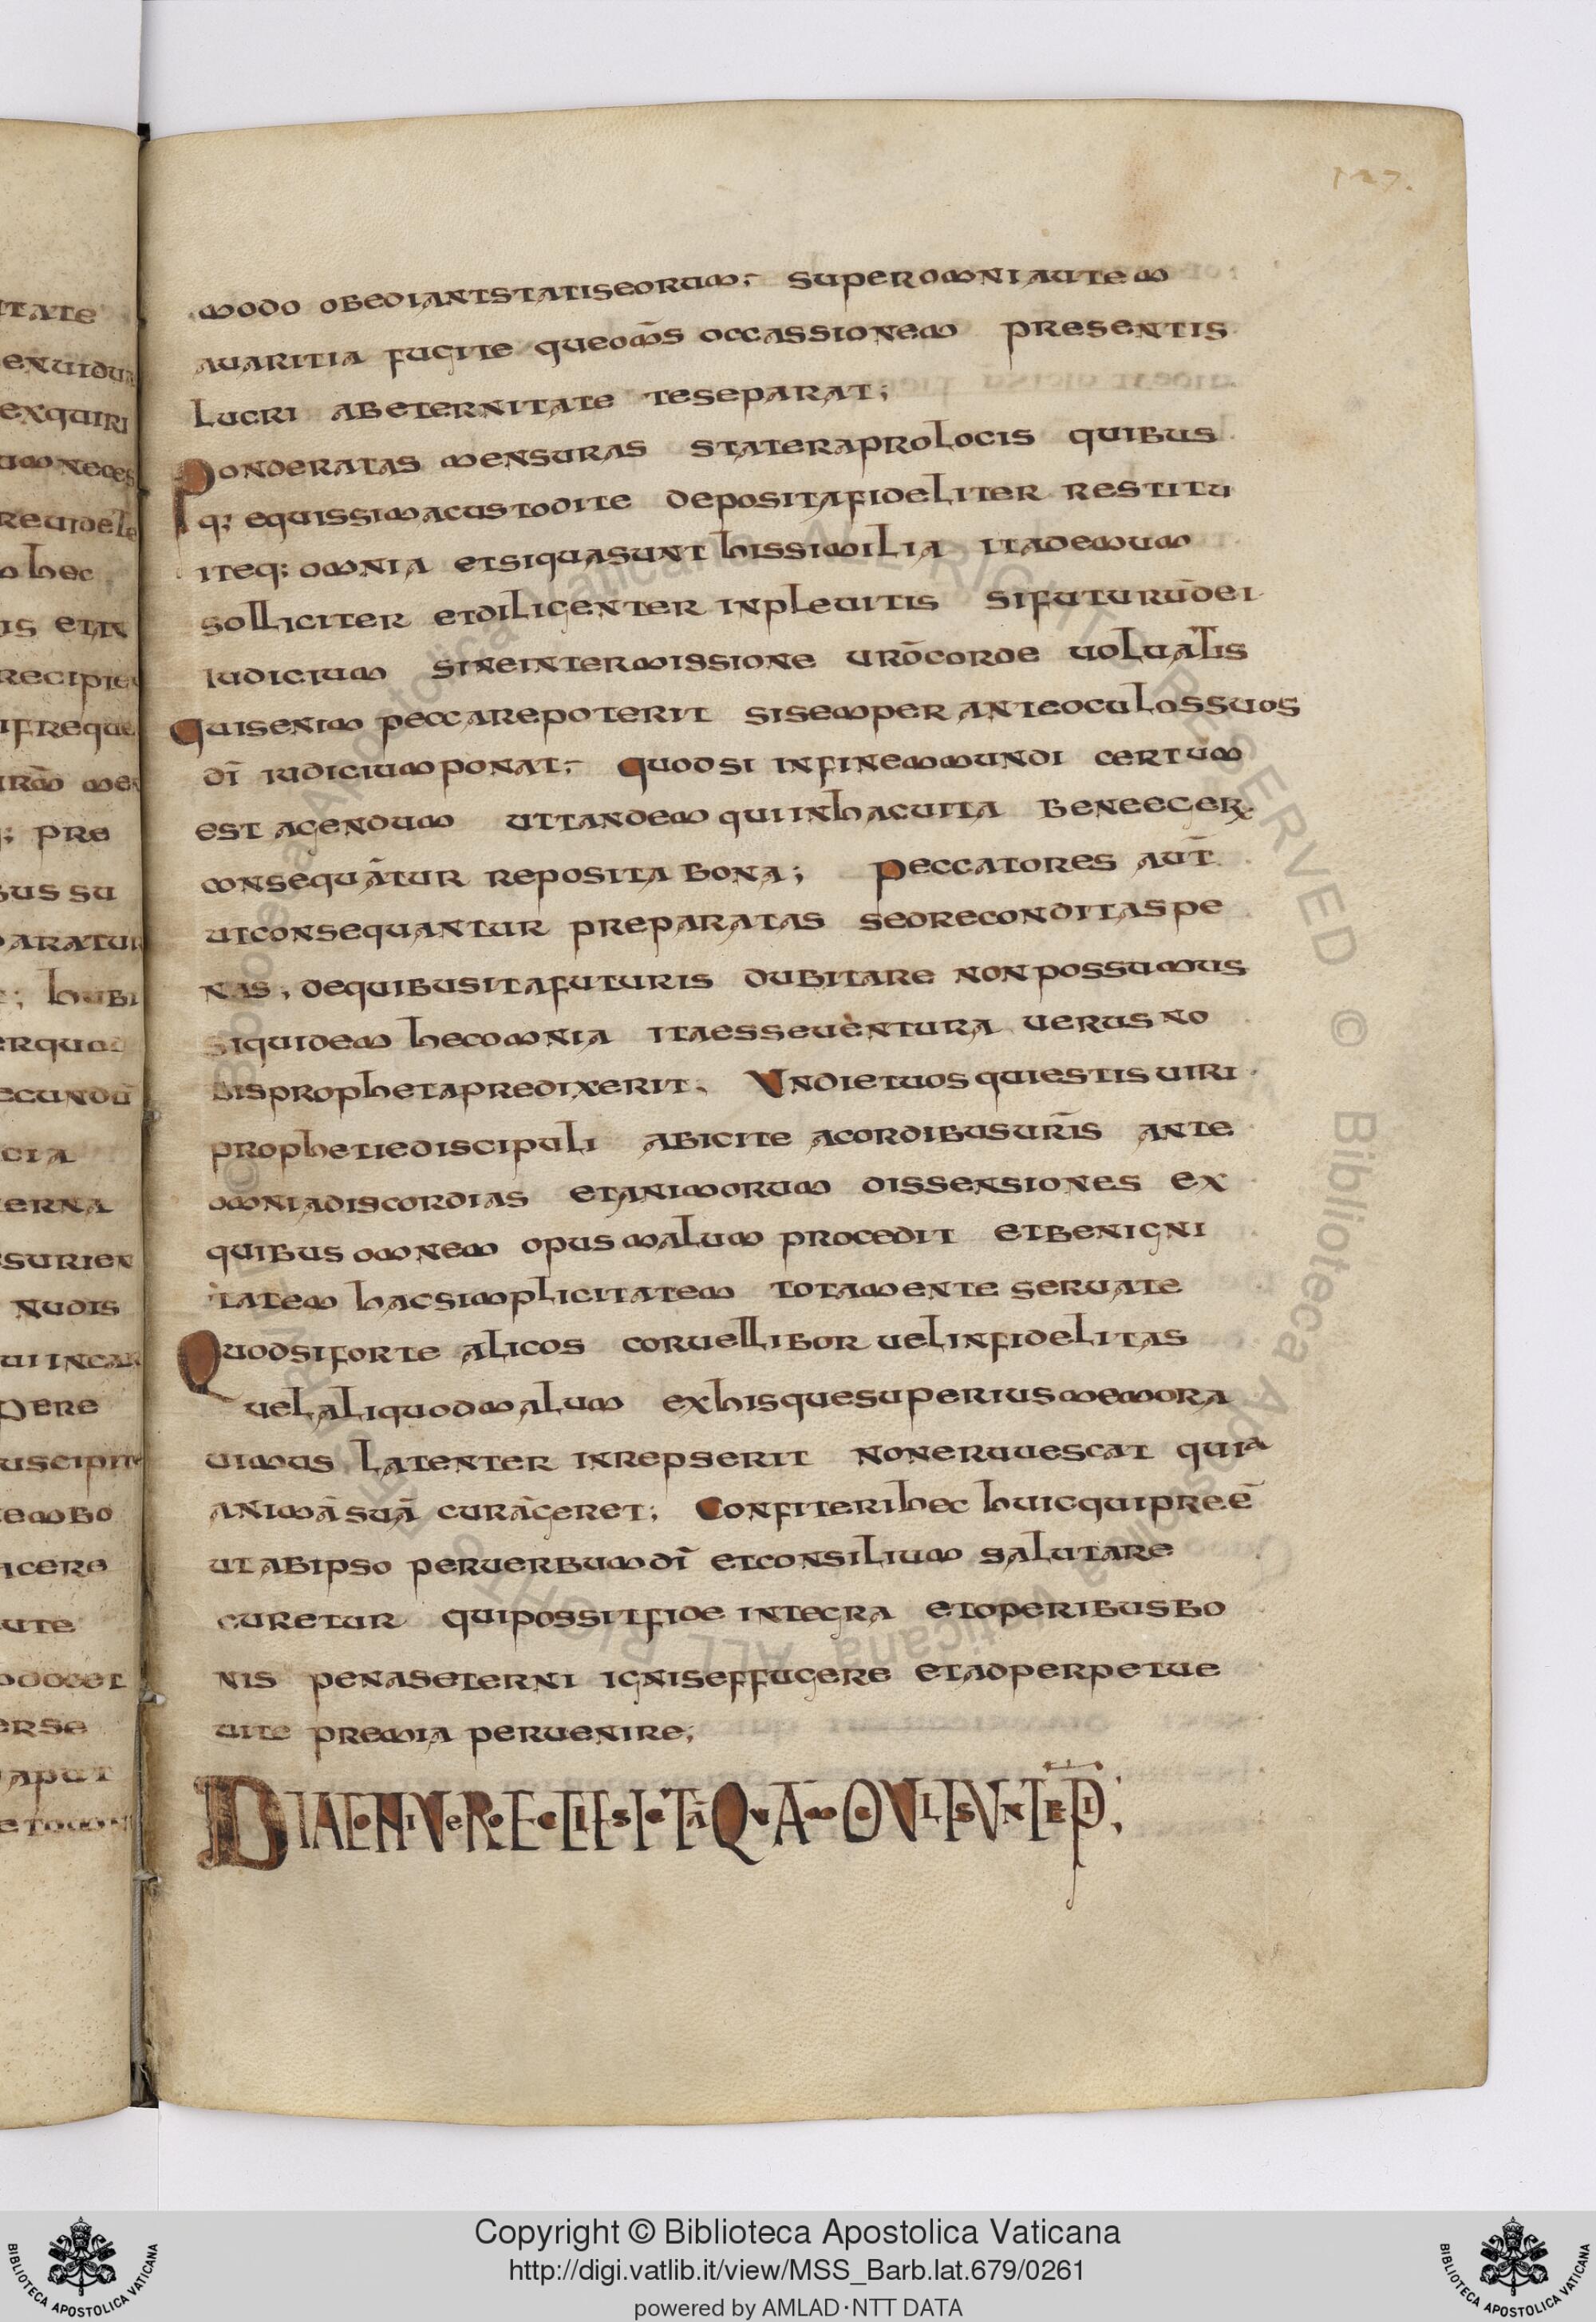 127.
modo obediantstatiseorum; superomniautem
auaritia fugite queom̄s occassionem presentis
lucri abeternitate teseparat;
Ponderatas mensuras stateraprolocis quibus
q; equissimacustodite depositafideliter restitu
iteq; omnia etsiquasunt hissimilia itademum
solliciter etdiligenter inpleuitis sifuturūdei
iudicium sineintermissione urōcorde uoluat̄is
Quisenim peccarepoterit sisemper anteoculossuos
dī iudiciumponat; Quodsi infinemmundi certum
est agendum uttandem quiinhacuita beneeger
consequātur reposita bona; Peccatores aut̄
utconsequantur preparatas sedreconditaspe
nas, dequibusitafuturis dubitare nonpossumus
siquidem hecomnia itaesseuentura uerusno
bisprophetapredixerit. Undietuosquiestisuiri
prophetiediscipuli abicite acordibusur̄is ante
omniadiscordias etanimorum dissensiones ex
quibus omnem opus malum procedit etbenigni
tatem hacsimplicitatem totamente seruate
Quodsiforte alicos coruelliboruelinfidelitas
uelaliquodmalum exhisquesuperiusmemora
uimus latenter inrepserit noneruuescat quia
animāsuā curāgeret; Confiterihec huicquipreē
utabipso peruerbumdī etconsilium salutare
curetur quipossitfide integra etoperibusbo
nis penaseterni igniseffugere etadperpetue
uite premia peruenire;
tate
exquiri
hec
us etin
recipie
; pre
bus su
; hubi
cia
erna
surien
nudis
pere
icere
ute
erse
aput
© Biblioteca Apostolica Vaticana ALL RIGHTS RESERVED © Biblioteca Apostolica Vaticana ALL RIGHTS RESERVED
Copyright © Biblioteca Apostolica Vaticana
http://digi.vatlib.it/view/MSS_Barb.lat.679/0261
powered by AMLAD·NTT DATA
BIBLIOTECA APOSTOLICA VATICANA
BIBLIOTECA APOSTOLICA VATICANA